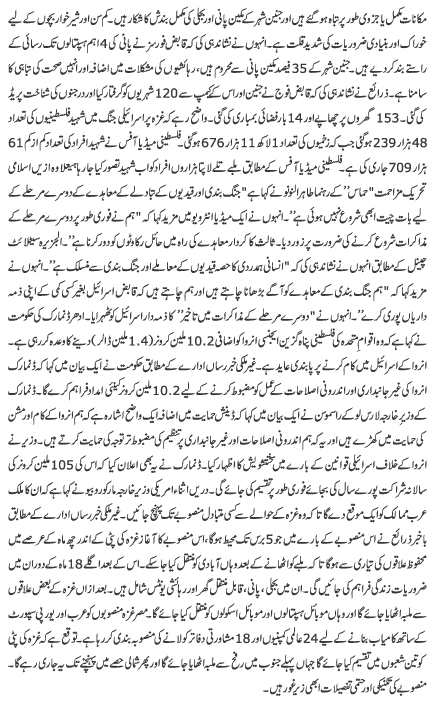 مکانات مکمل یا جزوی طور پر تباہ ہو گئے ہیں اور جنین شہر کے مکین پانی اور بجلی کی مکمل بندش کا شکار ہیں۔ کم سن اور شیر خوار بچوں کے لیے
خوراک اور بنیادی ضروریات کی شدید قلت ہے۔ انہوں نے نشاندہی کی کہ قابض فورسز نے پانی کی 4 اہم ہسپتالوں تک رسائی کے
راستے بند کر دیے ہیں۔ جنین شہر کے 35 فیصد مکین پانی سے محروم ہیں، رہائشیوں کی مشکلات میں اضافہ اور انہیں صحت کی تباہی کا
سامنا ہے۔ ذرائع نے نشاندہی کی کہ قابض فوج نے جنین اور اس کے کیمپ سے 120 شہریوں کو گرفتار کیا اور درجنوں کی شناخت پریڈ
کی گئی۔ 153 گھروں پر چھاپے اور 14 بار فضائی بمباری کی گئی۔ واضح رہے کہ غزہ پر اسرائیلی جنگ میں شہید فلسطینیوں کی تعداد
48 ہزار 239 ہو گئی جب کہ زخمیوں کی تعداد 1 لاکھ 11 ہزار 676 ہو گئی۔ فلسطینی میڈیا آفس نے شہید افراد کی تعداد کم از کم 61
ہزار 709 جاری کی ہے۔ فلسطینی میڈیا آفس کے مطابق ملبے تلے لاپتا ہزاروں افراد کو اب شہید تصور کیا جا رہا ہے علاوہ ازیں اسلامی
تحریک مزاحمت ''حماس'' کے رہنما طاہر النونو نے کہا ہے ''جنگ بندی اور قیدیوں کے تبادلے کے معاہدے کے دوسرے مرحلے کے
لیے بات چیت ابھی شروع نہیں ہوئی ہے''۔ انہوں نے ایک میڈیا انٹرویو میں مزید کہا کہ ''ہم نے فوری طور پر دوسرے مرحلے کے
مذاکرات شروع کرنے کی ضرورت پر زور دیا۔ ثالث کا کردار معاہدے کی راہ میں حائل رکاوٹوں کو دور کرنا ہے''۔ الجزیرہ سیٹلائٹ
چینل کے مطابق انہوں نے نشاندہی کی کہ ''انسانی ہمدردی کا حصہ قیدیوں کے معاملے اور جنگ بندی سے منسلک ہے''۔ انہوں نے
مزید کہا کہ ''ہم جنگ بندی کے معاہدے کو آگے بڑھانا چاہتے ہیں اور ہم چاہتے ہیں کہ قابض اسرائیل بغیر کسی کمی کے اپنی ذمہ
داریاں پوری کرے''۔ انہوں نے ''دوسرے مرحلے کے مذاکرات میں تاخیر'' کا ذمہ دار اسرائیل کو ٹھہرایا۔ ادھر ڈنمارک کی حکومت
نے کہا ہے کہ وہ اقوام متحدہ کی فلسطینی پناہ گزین ایجنسی انروا کو اضافی 10.2 ملین کرونر (1.4 ملین ڈالر) دینے کا وعدہ کر رہی ہے۔
انروا کے اسرائیل میں کام کرنے پر پابندی عاید ہے۔ غیر ملکی خبر رساں ادارے کے مطابق حکومت نے ایک بیان میں کہا کہ ڈنمارک
انروا کی غیر جانبداری اور اندرونی اصلاحات کے عمل کو مضبوط کرنے کے لیے 10.2 ملین کرونر کی نئی امداد فراہم کرے گا۔ ڈنمارک
کے وزیر خارجہ لارس لوکے راسموسن نے ایک بیان میں کہا کہ ڈینش حمایت میں اضافہ ایک واضح اشارہ ہے کہ ہم انروا کے کام اور مشن
کی حمایت میں کھڑے ہیں اور یہ کہ ہم اندرونی اصلاحات اور غیر جانبداری پر تنظیم کی مضبوط تر توجہ کی حمایت کرتے ہیں۔ وزیر نے
انروا کے خلاف اسرائیلی قوانین کے بارے میں تشویش کا اظہار کیا۔ ڈنمارک نے یہ بھی اعلان کیا کہ اس کی 105 ملین کرونر کی
سالانہ شراکت پورے سال کی بجائے فوری طور پر تقسیم کی جائے گی۔ دریں اثناء امریکی وزیر خارجہ مارکو روبیو نے کہا ہے کہ ان کا ملک
عرب ممالک کو ایک موقع دے گا تاکہ وہ غزہ کے حوالے سے کسی متبادل منصوبے تک پہنچ جائیں۔ غیر ملکی خبر رساں ادارے کے مطابق
باخبر ذرائع نے اس منصوبے کے بارے میں جو 5 برس تک محیط ہوگا، اس منصوبے کا آغاز غزہ کی پٹی کے اندر چھ ماہ کے عرصے میں
محفوظ علاقوں کی تیاری سے ہوگا تاکہ ملبے کو اٹھانے کے بعد وہاں آبادی کو منتقل کیا جا سکے۔ اس کے بعد اگلے 18 ماہ کے دوران میں
ضروریات زندگی فراہم کی جائیں گی۔ ان میں بجلی، پانی، قابل نقل گھر اور رہائشی یونٹس شامل ہیں۔ بعد ازاں غزہ کے بعض علاقوں
سے ملبا اٹھایا جائے گا اور وہاں موبائل ہسپتالوں اور موبائل اسکولوں کو منتقل کیا جائے گا۔ مصر غزہ منصوبوں کو عرب اور یورپی سپورٹ
کے ساتھ کامیاب بنانے کے لیے 24 عالمی کمپنیوں اور 18 مشاورتی دفاتر کو لانے کی منصوبہ بندی کر رہا ہے۔ توقع ہے کہ غزہ کی پٹی
کو تین شعبوں میں تقسیم کیا جائے گا جہاں پہلے جنوب میں رفح سے ملبا اٹھایا جائے گا اور پھر شمالی حصے میں پہنچنے تک یہ جاری رہے گا۔
منصوبے کی تکنیکی اور حتمی تفصیلات ابھی زیر غور ہیں۔